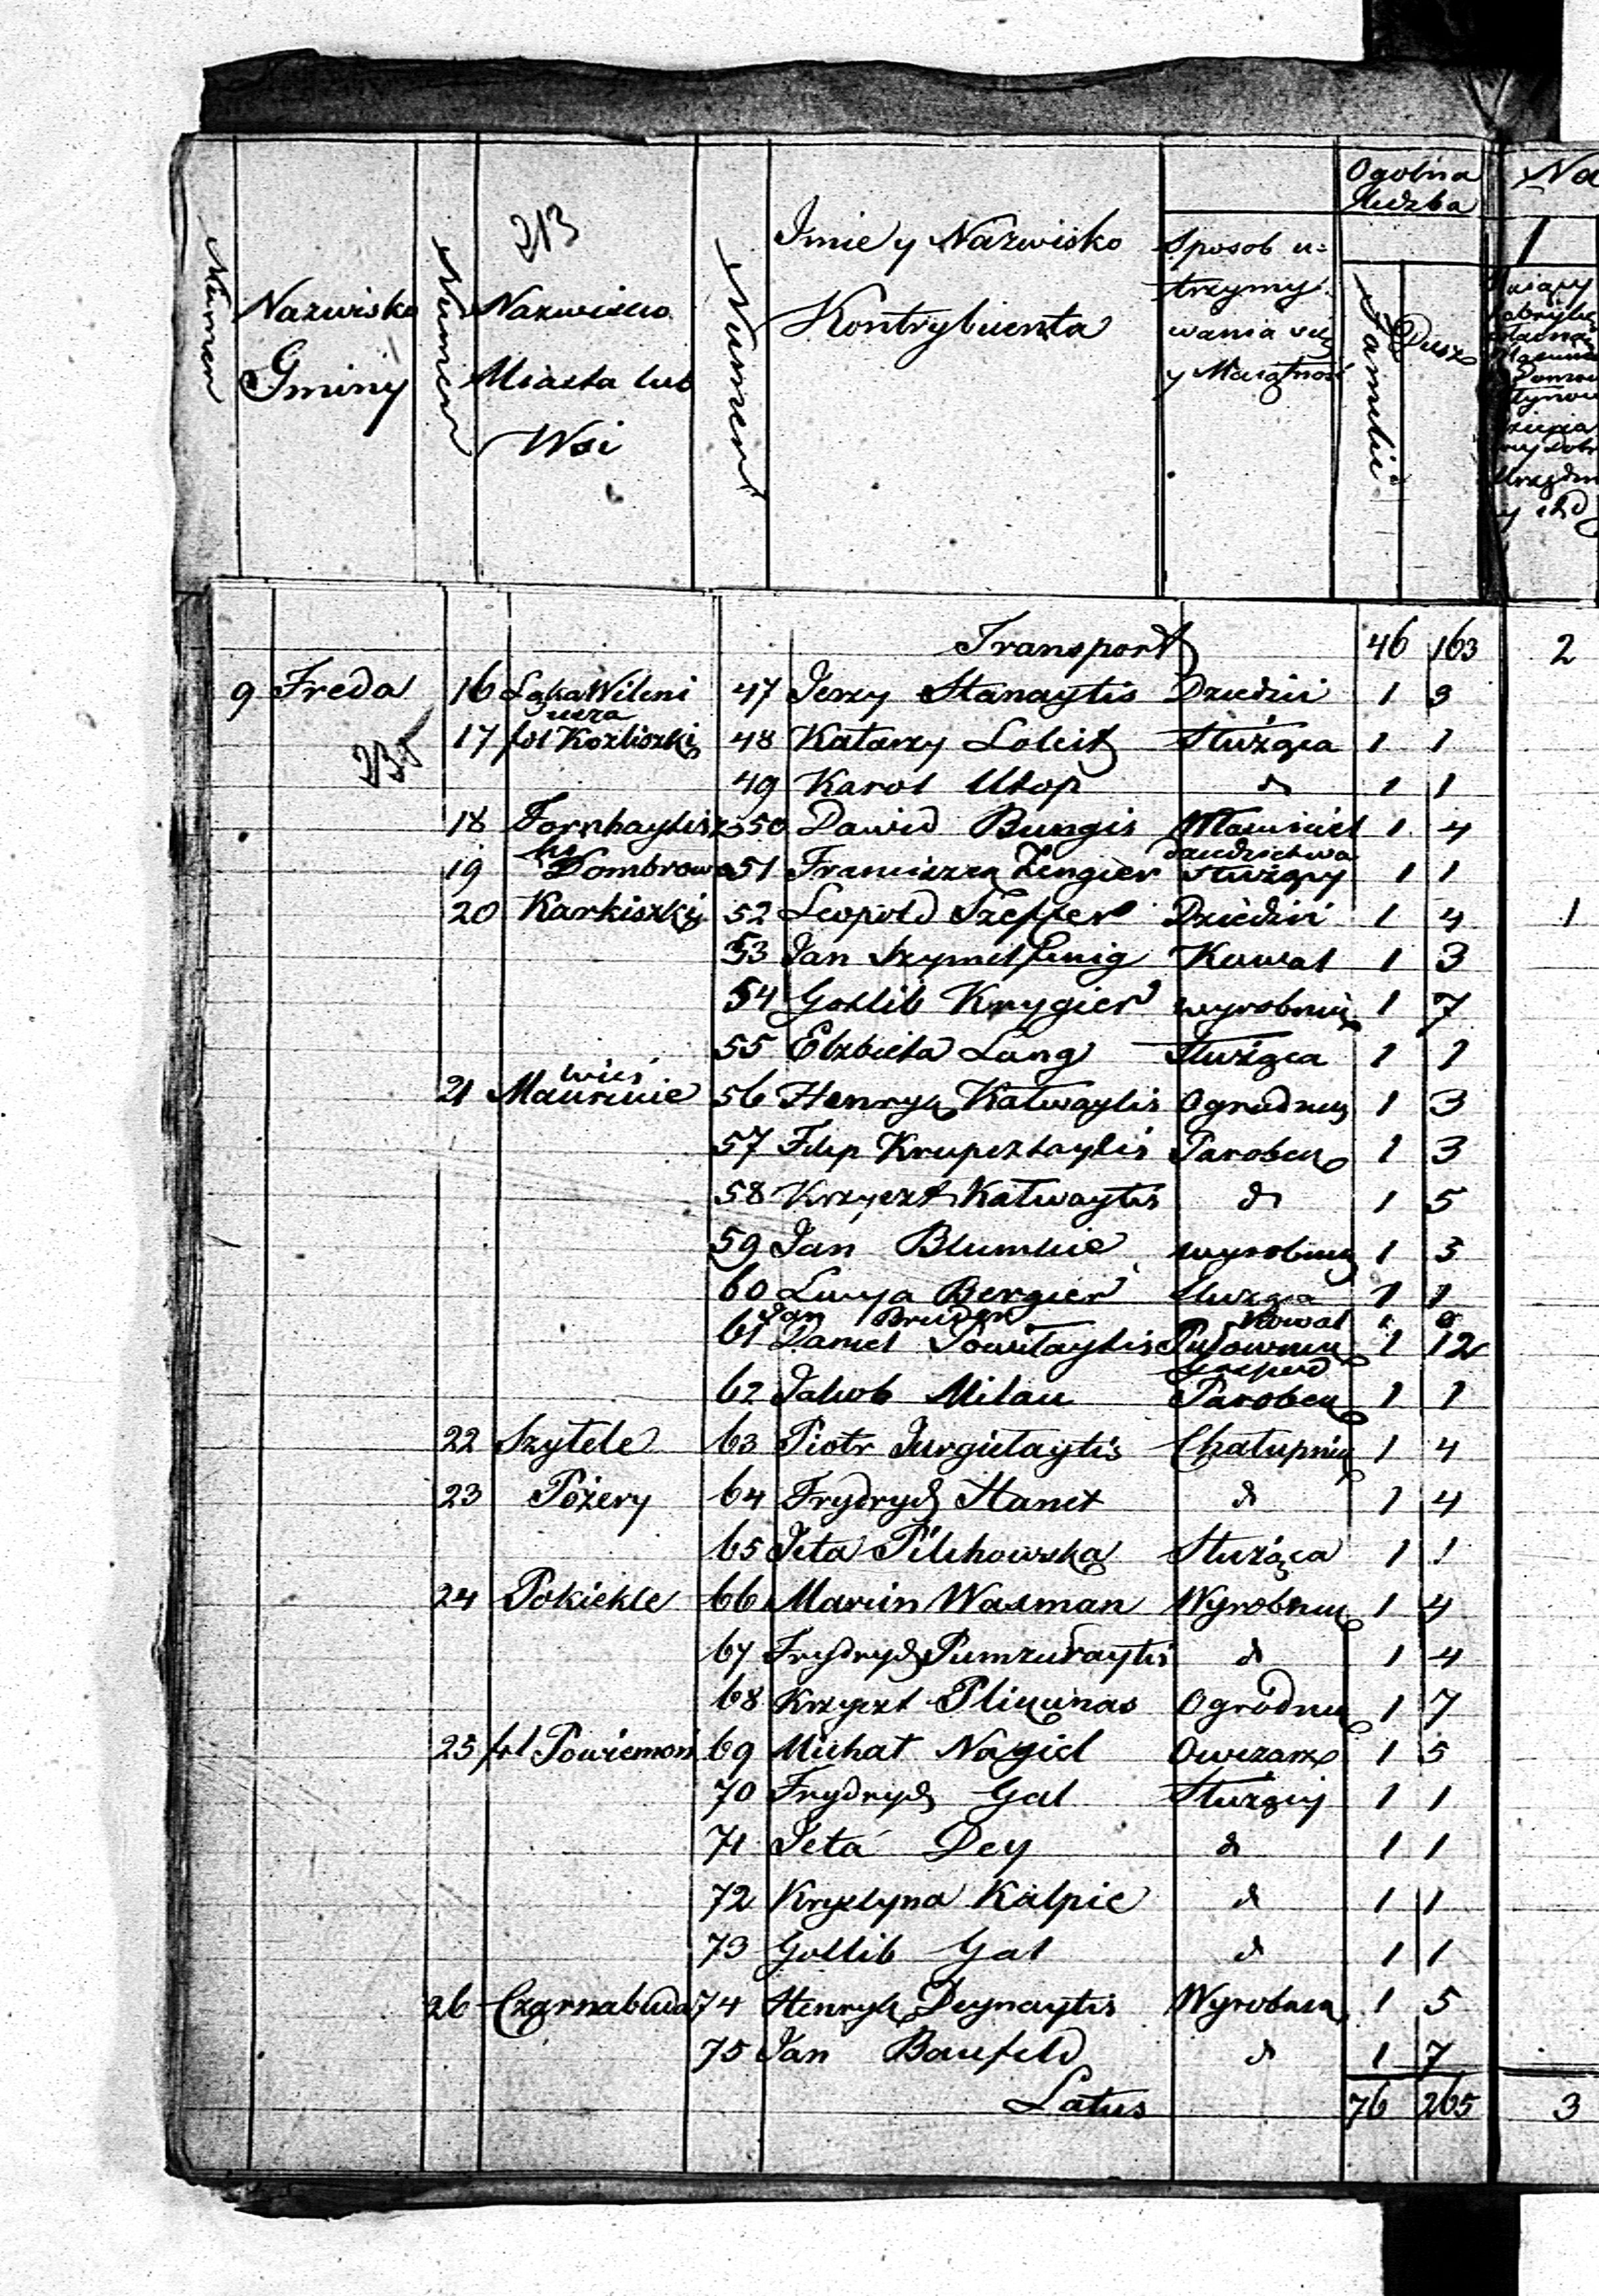 213
Numer
Nazwisko Gminy
Numer
Nazwisko Miasta lub Wsi
Numer
Imie y Nazwisko Kontrybuenta
Sposob u= trzymy wania się y Maiątność
Ogolna liczba
Familii
Dusz
Na
1
Transport 46 163 2
9 Freda 16 Łąka Wileni 47 Jerzy Stanaytis Dziedzic 1 3
235 17 fol Kozliszki 48 Katarzy Loleit Służąca 1 1
49 Karol Utop d 1 1
18 50 Dawid Bungis Właściciel 1 4
dziedzictwa
19 Dombrowa 51 Franciszka Zengier Służący 1 1
20 Karkiszki 52 Leopold Szeffer Dziedzic 1 4 1
53 Jan Kowal 1 3
54 Gotlib Krygier wyrobnik 1 7
55 Elzbieta Lang Służąca 1 1
wieś
21 Maurucie 56 Henryk Katwaytis Ogrodnik 1 3
57 Filip Krupsztaytis Parobek 1 3
58 Krzyszt Katwaytis d 1 5
59 Jan Blumkie wyrobnik 1 3
60 Luiza Bergier Służąca 1 1
Jan Bruder Kowal
61 Daniel 1 12
62 Jakob Milau Parobek 1 1
22 Szytele 63 Piotr Jurgietaytis Chałupnik 1 4
23 Pożery 64 Frydrych Stanet d 1 4
65 Jeta Pilchowska Służąca 1 1
24 Pokiekle 66 Marcin Wasman Wyrobnik 1 4
67 Frydrych d 1 4
68 Krzyszt Plikunas Ogrodnik 1 7
25 fol Powiemoń 69 Michał Nagiel Owczarz 1 5
70 Frydrych Gal Służący 1 1
71 Jeta Dey d 1 1
72 Krystyna Kalpie d 1 1
73 Gotlib Gal d 1 1
26 Czarnabuda 74 Henryk Deynaytis Wyrobnik 1 5
75 Jan Baufeld d 1 7
Latus 76 265 3